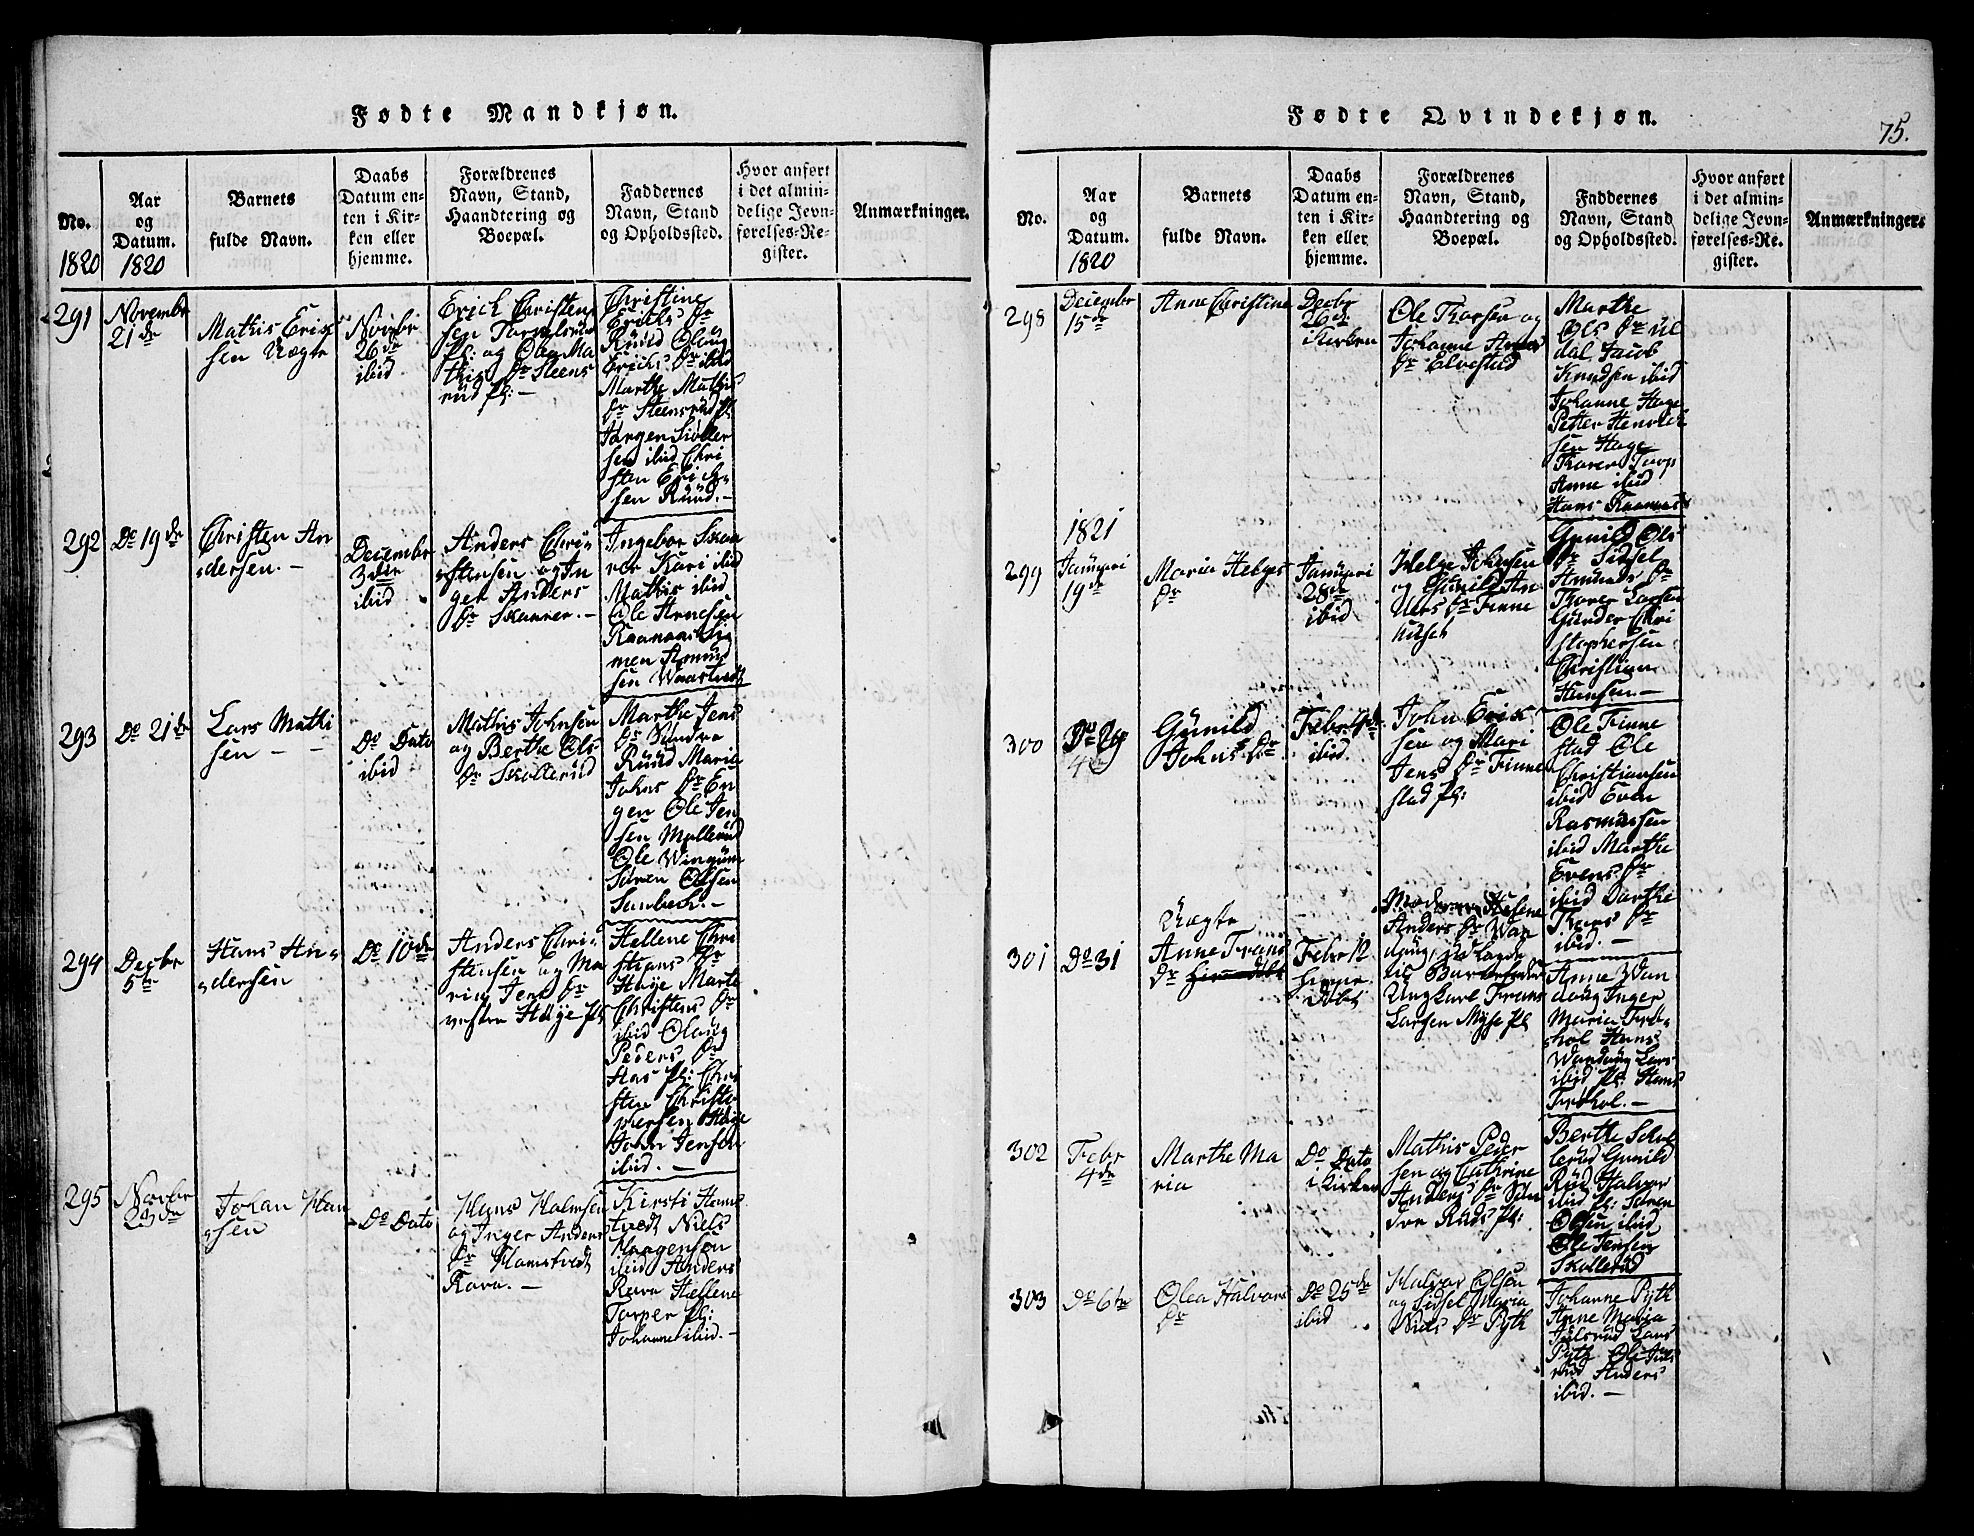 Fødte Mandkjøn.
No.
1820
Aar
og
Datum.
1820
Barnets
fulde Navn.
Daabs
Datum en-
ten i Kir-
ken eller
hjemme.
Forældrenes
Navn, Stand,
Haandtering og
Boepæl.
Faddernes
Navn, Stand
og Opholdssted.
Hvor anført
i det almin-
delige Jevn-
førelses-Re-
gister.
Anmærkninger.
291
Novembr
21de
Mathis Erik
sen Uægte
Novbr
26de
ibid
Erich Christen
sen
pl: og Olea Ma
this Dr Steens
rud pl: –
Christine
Erichs Dr
Ruud Olaug
Erichs Dr ibid
Marthe Mathis
Dr Steensrud pl:
Jørgen
sen ibid Chri
sten Erich-
sen Ruud. –
292
Do 19de
Christen An
dersen. –
Decembr
3die
ibid
Anders Chri-
stensen og In
ger Anders
Dr Skanner. –
Ingebor Skan
ner Kari ibid
Mathis ibid
Ole Arnesen
Raanaas Si
men Amund
sen
293
Do 21de
Lars Mathi
sen – –
Do Dato
ibid
Mathis Johnsen
og Berthe Ols
Dr Skollerud
Marthe Jens
Dr Søndre
Ruud Maria
Johns Dr En
gen Ole Jen
sen Mollerud
Ole
Søren Olsen
Sanbech. –
294
Decbr
5te
Hans An-
dersen
Do 10de
Anders Chri-
stensen og Ma
ria Jens Dr
vestre Høije pl:
Hellene Chri
stians Dr
Høije Marte
Christens Dr
ibid Olaug
Peders Dr
Has pl: Chri
sten Christo
phersen Høije
John Jensen
ibid. –
295
Novbr
Johan Han
sen
Do Dato
Hans Halmsen
og Inger Anders
Dr Hamstvedt
Rava. –
Kirsti Ham
tvedt Niels
Haagensen
ibid Anders
Rava Hellene
Torper pl:
Johanne ibid. –
Fødte Qvindekjøn.
75.
No.
Aar
og
Datum.
1820
Barnets
fulde Navn.
Daabs
Datum en-
ten i Kir-
ken eller
hjemme.
Forældrenes
Navn, Stand,
Haandtering og
Boepæl.
Faddernes
Navn, Stand
og Opholdssted.
Hvor anført
i det almin-
delige Jevn-
førelses-Re-
gister.
Anmærkninger.
298
Decembr
15de
Anne Christine
Decbr
26de
i Kirken
Ole Thorsen og
Johanne
Dr Elvestad
Marthe
Ols Dr Ul
dal Jacob
Knudsen ibid
Johanne Hage
Petter Henrich
sen Hage
Karen Torp
Anne ibid
Hans Raanaas
1821
299
Januari
19de
Maria Helges
Dr
Januari
28de
ibid
Helge Johnsen
og Gunild An
ders Dr Finne
huset
Gunild Ols
Dr Sidsel
Amunds Dr
Thorer Larsen
Gunder Chri
stophersen
Christian
Hansen. –
300
Gunild
Johns Dr
ibid.
John Erik
sen og Mari
Jens Dr Finne
stad pl:
Ole Finne
stad Ole
Christiansen
ibid Even
Rasmusen
ibid Marthe
Evens Dr
ibid Dorthe
Thors Dr
ibid. –
301
Do 31
Uægte
Anne Frans
Dr
Febr 12
hjemme
døbt
Moderen Helene
Anders Dr Wan
daug, udlagde
til Barnefader
Ungkarl Frans
Larsen Myse pl:
Anne Wan
daug Inger
Maria Frø-
hol Hans
Wandaug Lars
ibid pl: Hans
Frøhol. –
302
Febr
4de
Marthe Ma
ria
Do Dato
i Kirken
Mathis Peder
sen og Cathrine
Anders Dr Søn
dre Ruds pl:
Berthe Skol
lerud Gunild
Rud Halvor
ibid pl: Søren
Olsen ibid
Ole Jensen
Skollerud
303
Do 6te
Olea Halvors
Dr
Do 25de
ibid
Halvor Olsen
og Sidsel Maria
Niels Dr Pyth
Johanne Pyth
Anne Maria
Julsrud Lars
Pyth Ole Juls
rud Anders
ibid. –